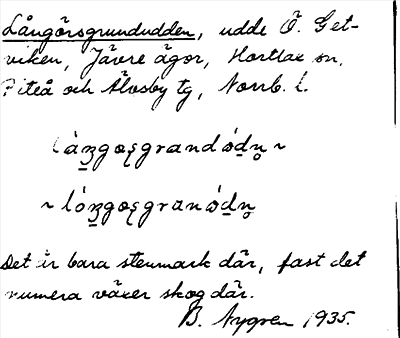 Långörsgrundudden, udde Ö. Get-
viken, Jävre ägor, Hortlax sn,
Piteå och Älvsby tg, Norrb. l.
~
~
Det är bara stenmark där, fast det
numera växer skog där.
B. Nygren 1935.